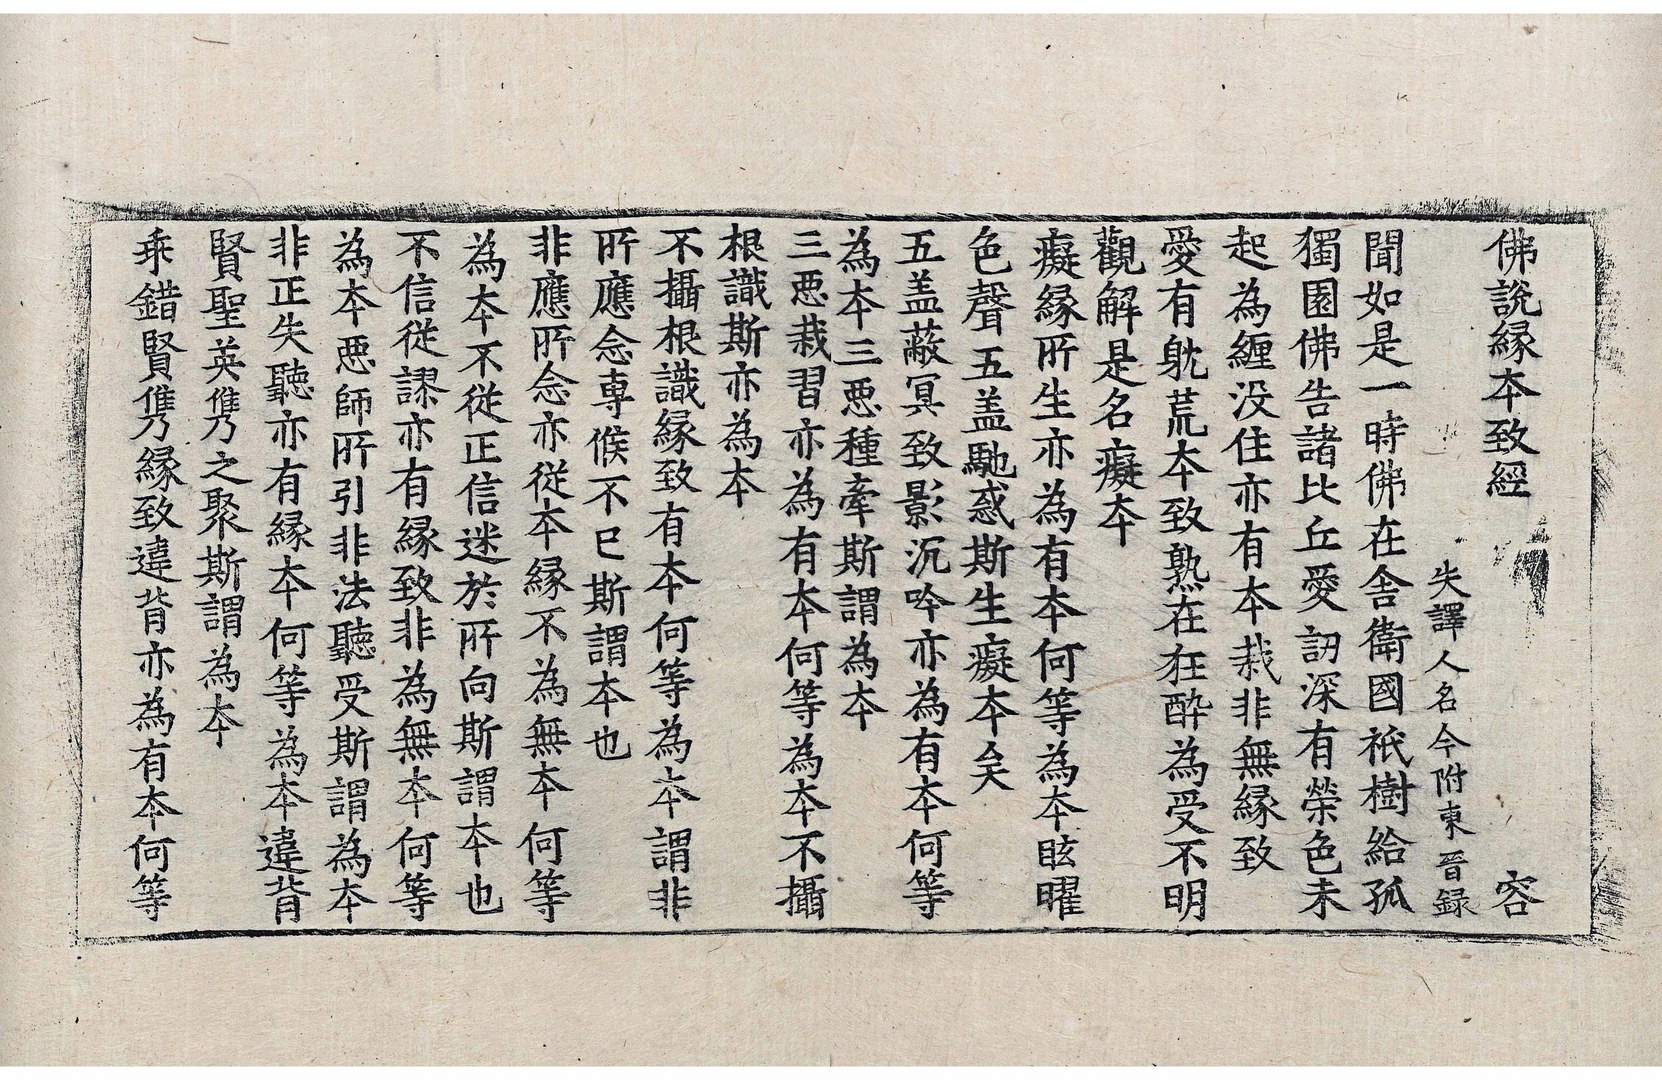 佛說緣本致經 容
失譯人名今附東晉録
聞如是一時佛在舍衛國祇樹給孤
獨園佛告諸比丘愛訒深有榮色未
起為纏没住亦有本栽非無緣致
愛有躭荒本致熟在狂醉為受不明
觀解是名癡本
癡緣所生亦為有本何等為本眩曜
色聲五盖馳惑斯生癡本矣
五盖蔽冥致影沉吟亦為有本何等
為本三惡種牽斯謂為本
三惡栽習亦為有本何等為本不攝
根識斯亦為本
不攝根識緣致有本何等為本謂非
所應念專候不已斯謂本也
非應所念亦從本緣不為無本何等
為本不從正信迷於所向斯謂本也
不信從謬亦有緣致非為無本何等
為本惡師所引非法聽受斯謂為本
非正失聽亦有緣本何等為本違背
賢聖英儁之聚斯謂為本
乖錯賢儁緣致違背亦為有本何等